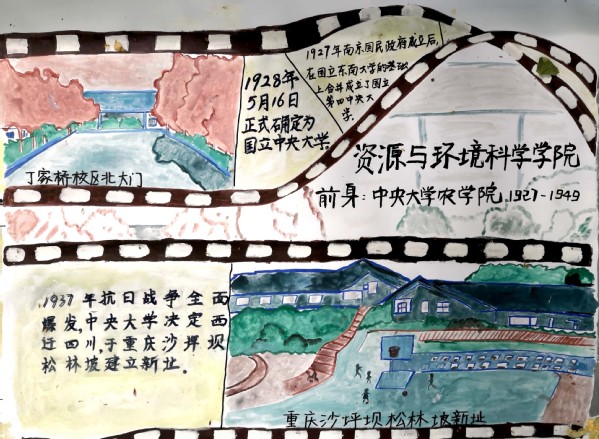 1927年南京国民政府成立后,
在国立东南大学的基础
上合并成立了国立
第四中央大
学.
1928年
5月16日
正式确定为
国立中央大学.
丁家桥校区北大门
资源与环境科学学院
前身:中央大学农学院.1927-1949
1937年抗日战争全面
爆发,中央大学决定西
迁四川,于重庆沙坪坝
松林坡建立新址.
重庆沙坪坝松林坡新址